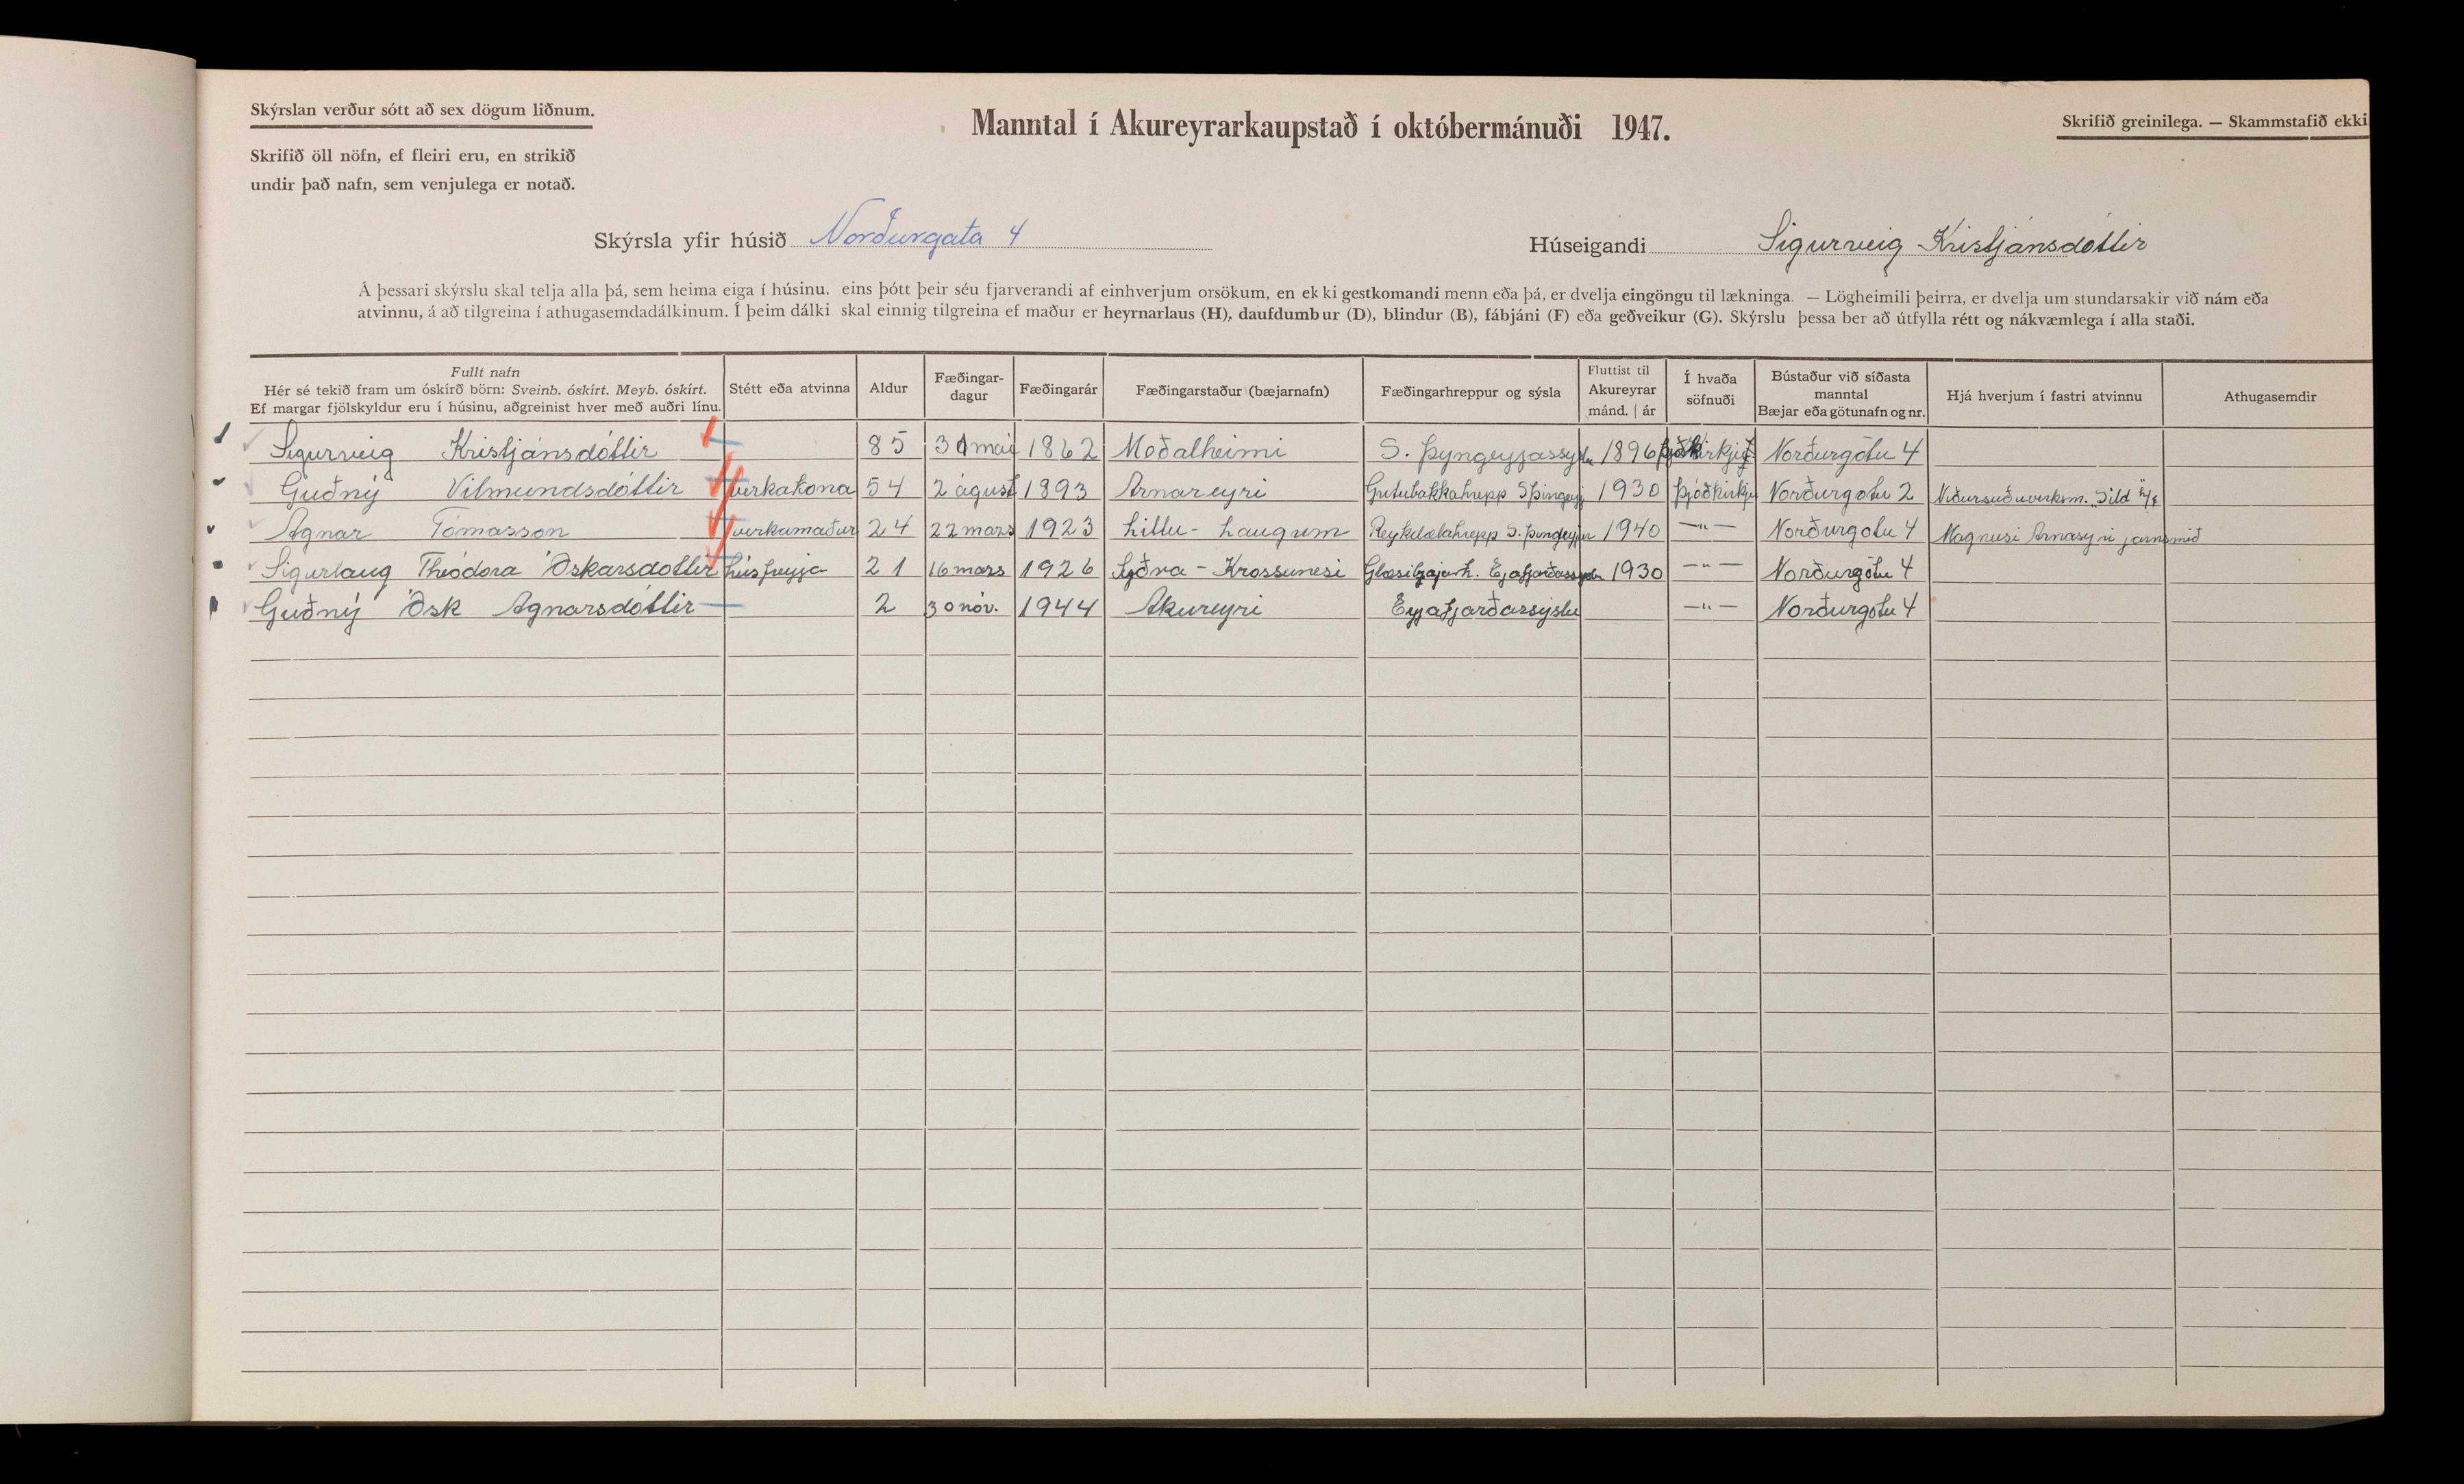 Skýrslan verður sótt að sex dögum liðnum.
Manntal í Akureyrarkaupstað í októbermánuði 1947.
Skrifið greinilega. — Skammstafið ekki
Skrifið öll nöfn, ef fleiri eru, en strikið
undir það nafn, sem venjulega er notað.
Skýrsla yfir húsið Norðurgata 4
Húseigandi Sigurveig Kristjánsdóttir
Á þessari skýrslu skal telja alla þá, sem heima eiga í húsinu, eins þótt þeir séu fjarverandi af einhverjum orsökum, en ekki gestkomandi menn eða þá, er dvelja eingöngu til lækninga. — Lögheimili þeirra, er dvelja um stundarsakir við nám eða
atvinnu, á að tilgreina í athugasemdadálkinum. Í þeim dálki skal einnig tilgreina ef maður er heyrnarlaus (H), daufdumbur (D), blindur (B), fábjáni (F) eða geðveikur (G). Skýrslu þessa ber að útfylla rétt og nákvæmlega í alla staði.
Fullt nafn
Hér sé tekið fram um óskírð börn: Sveinb. óskírt. Meyb. óskírt.
Ef margar fjölskyldur eru í húsinu, aðgreinist hver með auðri línu.
Stétt eða atvinna
Aldur
Fæðingar-
dagur
Fæðingarár
Fæðingarstaður (bæjarnafn)
Fæðingarhreppur og sýsla
Fluttist til
Akureyrar
mánd. | ár
Í hvaða
söfnuði
Bústaður við síðasta
manntal
Bæjar eða götunafn og nr.
Hjá hverjum í fastri atvinnu
Athugasemdir
Sigurveig Kristjánsdóttir 85 30 mai 1862 Meðalheimi S. Þyngeyjassyslu 1896 Norðurgötu 4
Guðný Vilmundsdóttir verkakona 54 2 águst 1893 Arnareyri Grutubakkahrepp S þingeyj 1930 þjóðkirkju Norðurgötu 2 Niðursuðuverksm. "Síld" h/f
Agnar Tómasson verkamaður 24 22 mars 1923 Litlu-Laugum Reykdælahrepp S. þingeyjar 1940 —"— Norðurgötu 4 Magnusi Arnasyni jarnsmið
Sigurlaug Theódora Óskarsdottir húsfreyja 21 16 mars 1926 Syðra-Krossanesi Glæsibæjarh. Eyjafjarðassyslu 1930 —"— Norðurgötu 4
Guðný Ósk Agnarsdóttir 2 30 nóv. 1944 Akureyri Eyjafjarðarsýslu —"— Norðurgötu 4